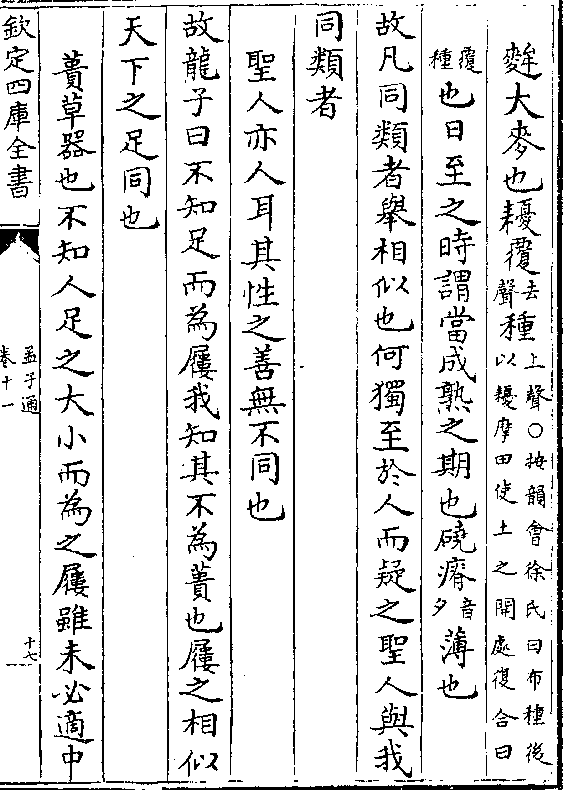 麰大麥也耰覆去聲種上聲○按韻會徐氏曰布種後以耰摩田使土之開處復合曰
覆種也日至之時謂當成熟之期也磽瘠音夕薄也
故凡同類者舉相似也何獨至於人而疑之聖人與我
同類者
聖人亦人耳其性之善無不同也
故龍子曰不知足而為屨我知其不為蕢也屨之相似
天下之足同也
蕢草器也不知人足之大小而為之屨雖未必適中
欽定四庫全書
孟子通
卷十一
十七